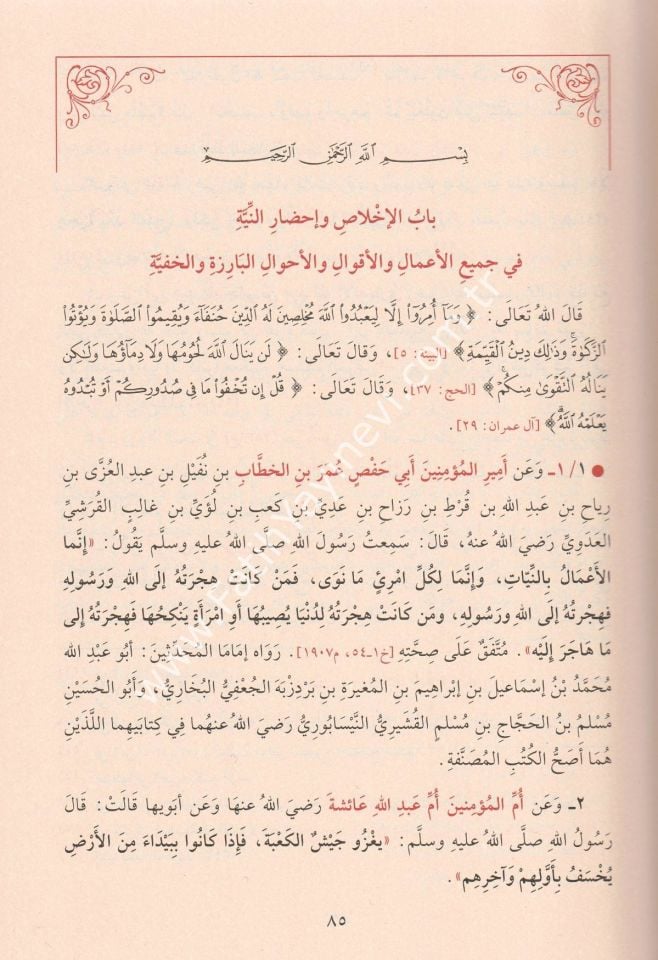 بِسْمِ ٱللَّهِ ٱلرَّحْمَٰنِ ٱلرَّحِيمِ
بابُ الإخْلاصِ وإحضارِ النِّيَّةِ
في جميعِ الأعمالِ والأقوالِ والأحوالِ البَارِزةِ والخفيَّةِ
قَالَ اللهُ تَعَالَى: ﴿ وَمَآ أُمِرُوٓاْ إِلَّا لِيَعْبُدُواْ ٱللَّهَ مُخْلِصِينَ لَهُ ٱلدِّينَ حُنَفَآءَ وَيُقِيمُواْ ٱلصَّلَوٰةَ وَيُؤْتُواْ
ٱلزَّكَوٰةَۚ وَذَٰلِكَ دِينُ ٱلْقَيِّمَةِ﴾ [البينة: ٥]، وَقَالَ تَعَالَى: ﴿ لَن يَنَالَ ٱللَّهَ لُحُومُهَا وَلَا دِمَآؤُهَا وَلَٰكِن
يَنَالُهُ ٱلتَّقْوَىٰ مِنكُمْۚ﴾ [الحج: ٣٧]، وَقَالَ تَعَالَى: ﴿ قُلْ إِن تُخْفُواْ مَا فِى صُدُورِكُمْ أَوْ تُبْدُوهُ
يَعْلَمْهُ ٱللَّهُۗ﴾ [آل عمران: ٢٩].
● ١/ ١ـ وَعَن أَمِيرِ المُؤْمِنِينَ أَبي حَفْصٍ عُمَرَ بنِ الخطَّابِ بنِ نُفَيْلِ بنِ عبدِ العُزَّى بنِ
رِياحِ بنِ عَبدِ اللهِ بنِ قُرْطِ بنِ رَزَاحِ بنِ عَدِيِّ بنِ كَعبِ بنِ لُؤَيِّ بنِ غالِبٍ القُرَشِيِّ
العَدَوِيِّ رَضيَ اللهُ عنهُ، قَالَ: سَمِعتُ رَسُولَ اللهِ صَلَّى اللهُ عليهِ وسلَّم يَقُولُ: «إِنَّما
الأَعْمَالُ بالنِّيَّاتِ، وَإنَّمَا لِكُلِّ امْرِئٍ مَا نَوَى، فَمَنْ كَانَتْ هِجْرَتُهُ إِلَى اللهِ وَرَسُولِهِ
فهِجرَتُهُ إِلَى اللهِ وَرسُولِهِ، ومَن كَانَت هِجْرَتُهُ لدُنْيَا يُصِيبُهَا أَوِ امْرَأَةٍ يَنْكِحُهَا فَهِجْرَتُهُ إِلى
مَا هَاجَرَ إِلَيْهِ». مُتَّفَقٌ عَلَى صِحَّتِهِ [خ١ـ٥٤، م١٩٠٧]. رَوَاه إمَامَا المُحَدِّثِينَ: أبُو عَبدِ اللهِ
مُحَمَّدُ بْنُ إسْمَاعيلَ بنِ إِبْراهِيمَ بنِ المُغيرَةِ بنِ بَرْدِزْبَةَ الجُعْفِيُّ البُخَارِيُّ، وَأَبو الحُسَيْنِ
مُسْلمُ بنُ الحَجَّاجِ بنِ مُسْلمٍ القُشَيْرِيُّ النَّيْسَابُورِيُّ رَضيَ اللهُ عنْهُما فِي كِتابَيهِما اللَّذَيْنِ
هُمَا أَصَحُّ الكُتُبِ المُصَنَّفةِ.
٢ـ وَعَن أُمِّ المُؤمِنينَ أُمِّ عَبدِ اللهِ عَائشةَ رَضيَ اللهُ عنهَا وَعَن أبَويها قَالَتْ: قَالَ
رَسُولُ اللهِ صلَّى اللهُ عليهِ وسلَّم: «يغْزُو جَيْشٌ الكَعْبَةَ، فَإِذَا كَانُوا بِبَيْدَاءَ مِنَ الأَرْضِ
يُخْسَفُ بأَوَّلِهِمْ وَآخِرِهِم».
٨٥
www.FatihYayinevi.com.tr